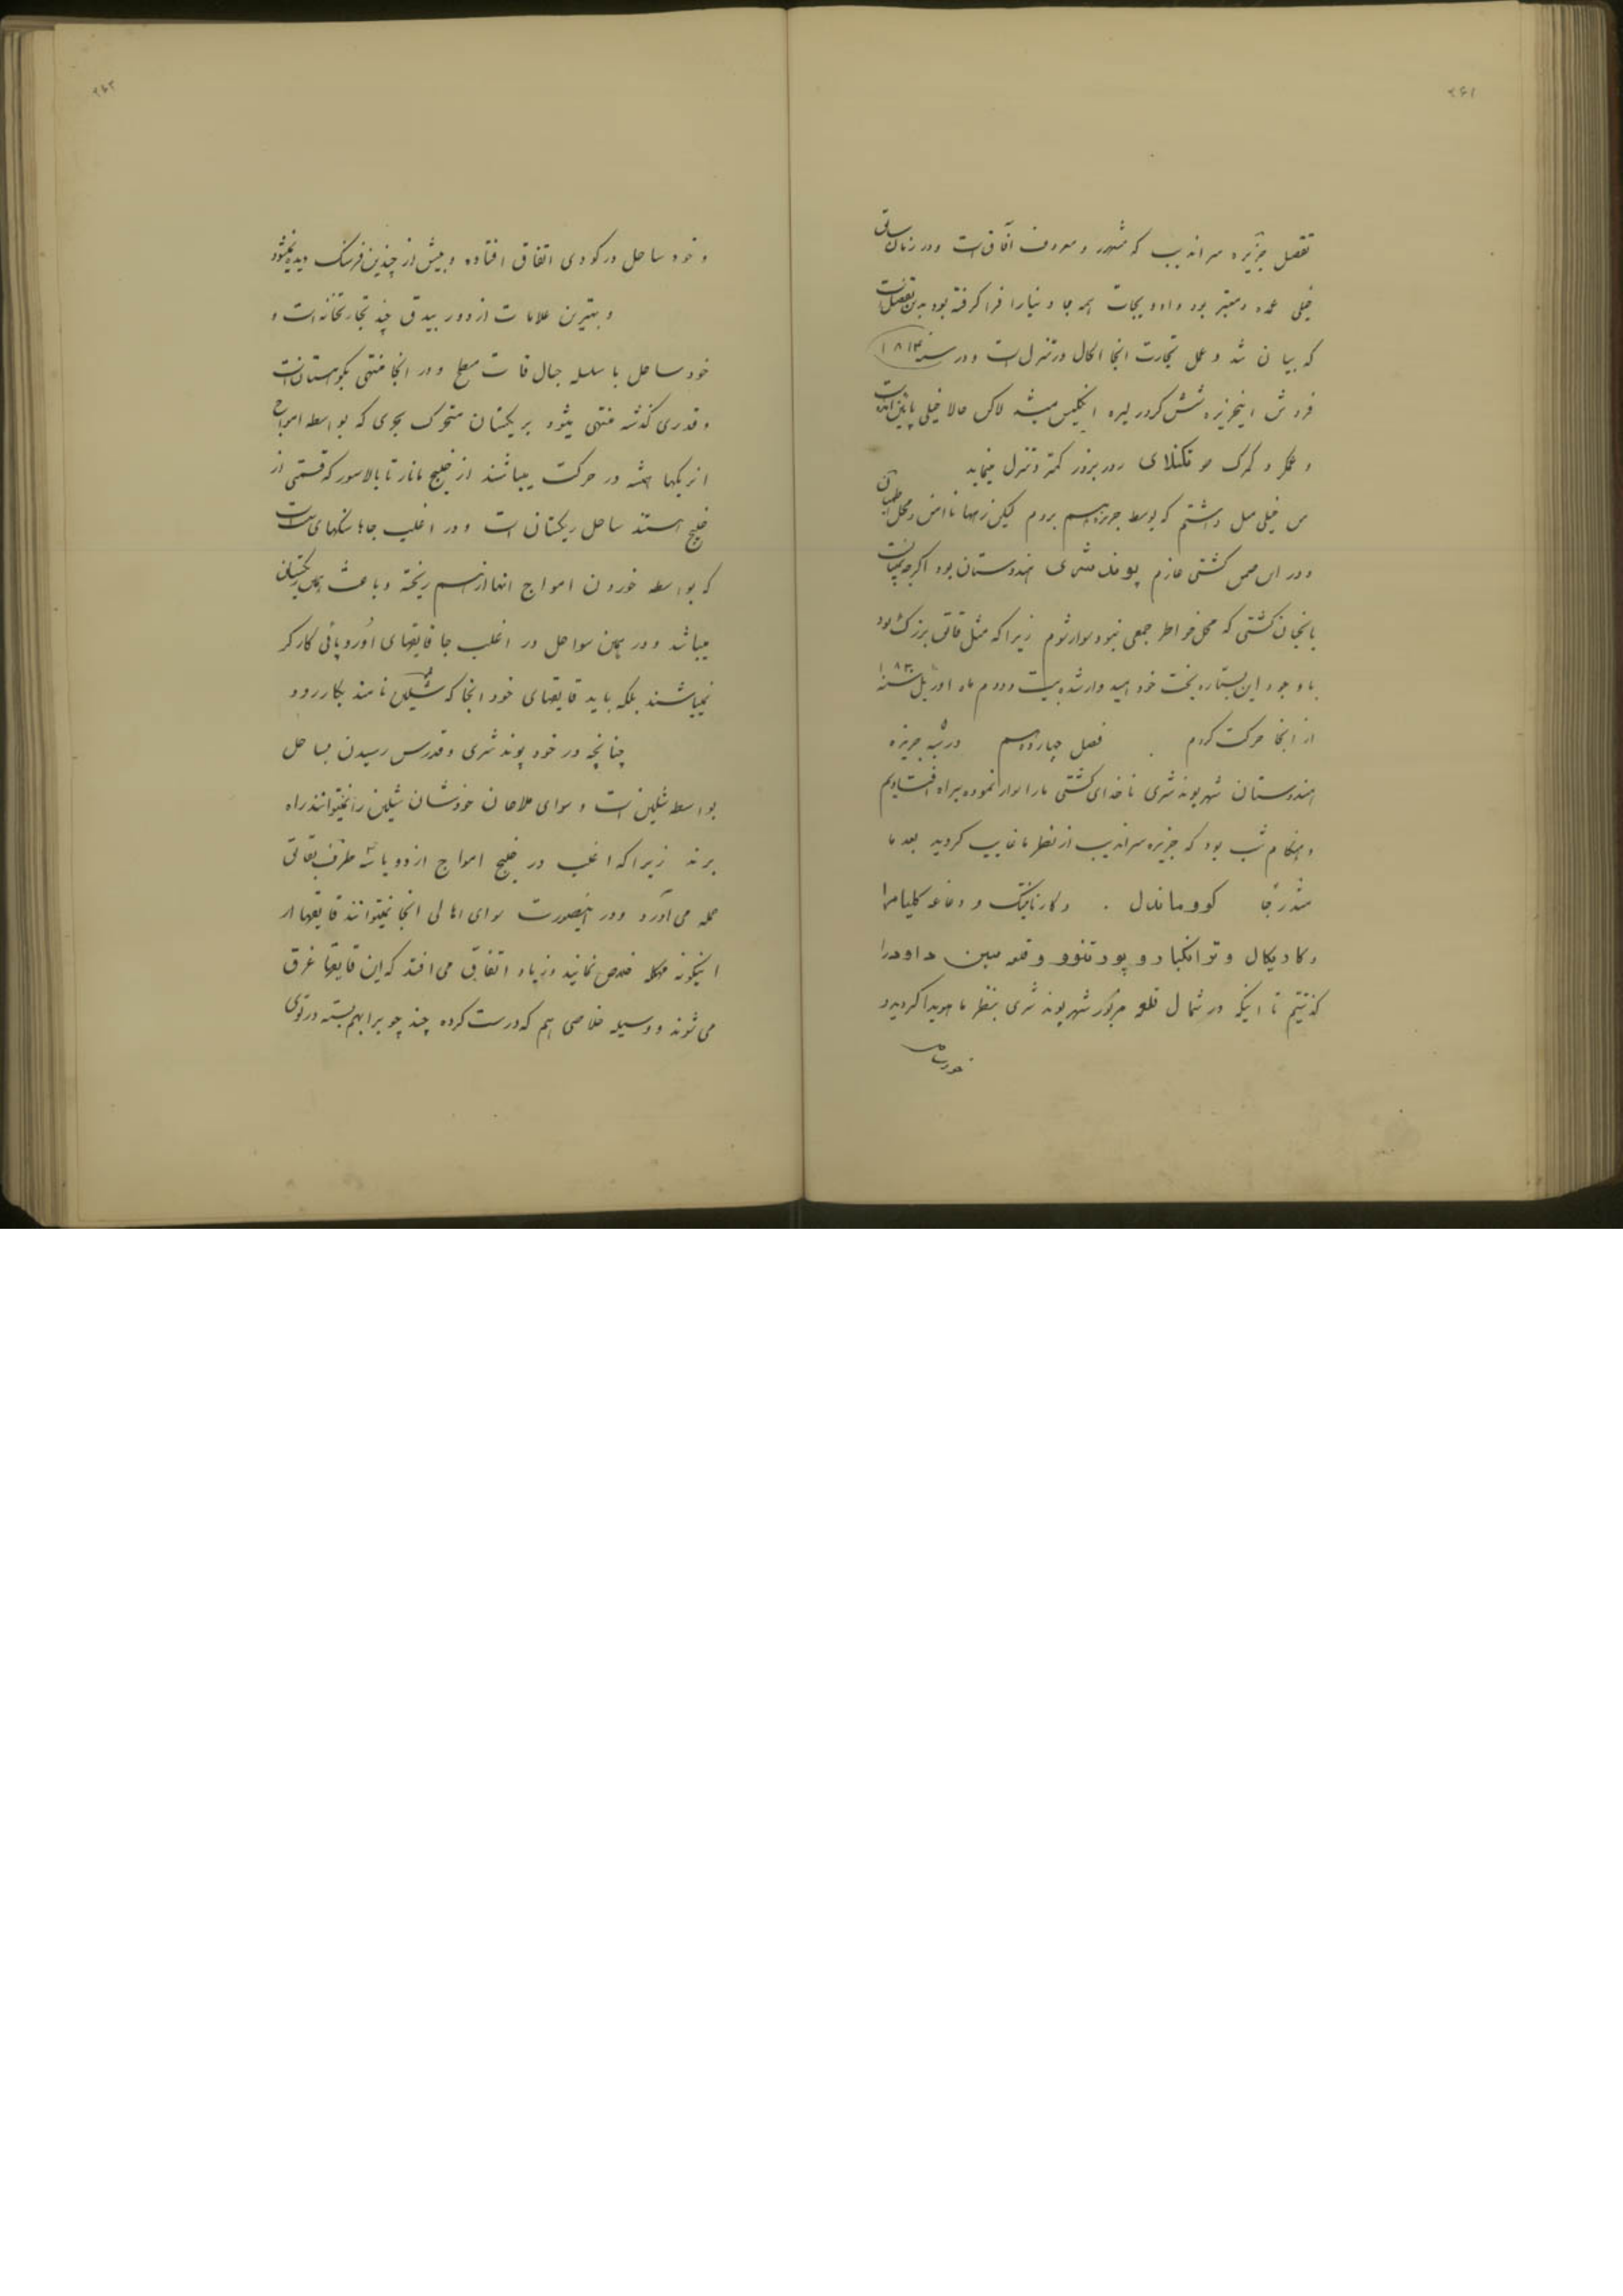 ۲۶۱
تفصیل جزیره سراندیب که مشهور و معروف آفاق است و در زمان سابق
خیلی عمده و معتبر بود و ادویجات همه جا دنیا را فرا گرفته بود بدین تفصیل است
که بیان شد و عمل تجارت انجا الحال در تنزل است و در سنه ۱۸۱۳
فروش اینجزیره شش کرور لیره انگلیس میشد لاکن حالا خیلی پائین آمده است
و گمرک روز بروز کمتر و تنزل مینماید
من خیلی میل داشتم که بوسط جزیره هم بروم لیکن زمانها ناامن و محل
و در این ضمن کشتی عازم پوندشری هندوستان بود اگرچه
بانجان کشتی که محل خواطر جمعی نبود سوار شوم زیرا که مثل قایق بزرگ بود
با وجود این بستاره بخت خود امیدوار شده بیست و دوم ماه اوریل سنه ۱۸۳۰
از انجا حرکت کردم فصل چهاردهم در شبه جزیره
هندوستان شهر پوندشری ناخدای کشتی ما را سوار نموده براه افتادیم
و هنگام شب بود که جزیره سراندیب از نظر ما غایب گردید بعد ما
متدرجا کوروماندل و کارناتیک و دماغه کلیامرا
و کادیکال و ترانکبار و پورتنوو و قلعه سین داود را
گذشتیم تا اینکه در شمال قلعه مزبور شهر پوندشری بنظر ما هویدا گردید و
خود ساحل
۲۶۲
و خود ساحل در گودی اتفاق افتاده و بیش از چندین فرسنگ دیده نمیشود
و بهترین علامات از دور بیدق چند تجارتخانه است و
خود ساحل با سلسله جبال قات مسطح و در انجا منتهی بکوهستان است
و قدری گذشته منتهی میشود بریگستان متحرک بحری که بواسطه امواج
انریگها همیشه در حرکت میباشند از خلیج مانار تا بالاسور که قسمتی از
خلیج هستند ساحل ریگستان است و در اغلب جاها سنگهای
که بواسطه خوردن امواج انها از هم ریخته و باعث همان ریگستان
میباشد و در همین سواحل در اغلب جا قایقهای اوروپائی کارگر
نمیباشند بلکه باید قایقهای خود انجا که شیلین نامند بکار رود
چنانچه در خود پوندشری و مدرس رسیدن بساحل
بواسطه شیلین است و سوای ملاحان خودشان شیلین را نمیتوانند راه
برند زیرا که اغلب در خلیج امواج از دو یا سه طرف بقایق
حمله می‌آورد و در اینصورت سوای اهالی انجا نمیتوانند قایقها را از
اینگونه مهلکه خلاص نمایند و زیاد اتفاق می افتد که این قایقها غرق
می شوند و وسیله خلاصی هم که درست کرده چند چوب را بهم بسته در توی